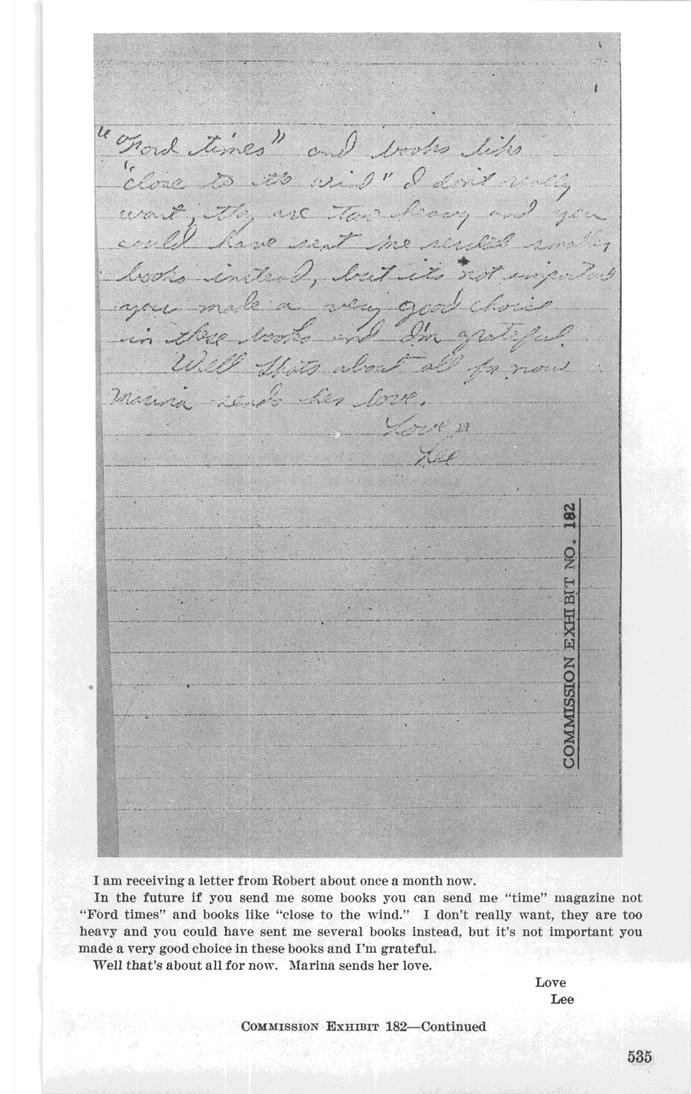 "Ford times" and books like
"close to the wind" I don't really
want, they are too heavy and you
could have sent me smaller
books instead, but its not important
you made a very good choice
in these books and I'm grateful.
Well thats about all for now
Marina sends her love.
Love
Lee
COMMISSION EXHIBIT NO. 182
I am receiving a letter from Robert about once a month now.
In the future if you send me some books you can send me “time” magazine not
“Ford times” and books like “close to the wind.” I don’t really want, they are too
heavy and you could have sent me several books instead, but it’s not important you
made a very good choice in these books and I’m grateful.
Well that’s about all for now. Marina sends her love.
Love
Lee
COMMISSION EXHIBIT 182—Continued
535